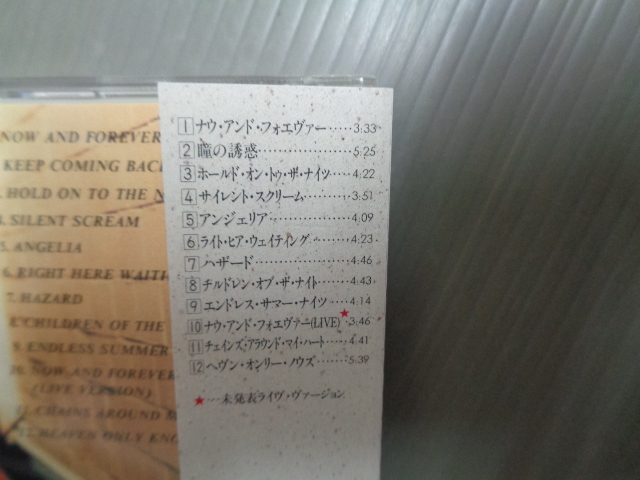 NOW AND FOREVER
KEEP COMING BACK
HOLD ON TO THE N
SILENT SCREAM
5. ANGELIA
6. RIGHT HERE WAITI
7. HAZARD
8. CHILDREN OF THE
9. ENDLESS SUMMER
10. NOW AND FOREVER
(LIVE VERSION)
11. CHAINS AROUND M
12. HEAVEN ONLY KNO
1 ナウ・アンド・フォエヴァー……3:33
2 瞳の誘惑……5:25
3 ホールド・オン・トゥ・ザ・ナイツ……4:22
4 サイレント・スクリーム……3:51
5 アンジェリア……4:09
6 ライト・ヒア・ウェイティング……4:23
7 ハザード……4:46
8 チルドレン・オブ・ザ・ナイト……4:43
9 エンドレス・サマー・ナイツ……4:14
10 ナウ・アンド・フォエヴァー(LIVE)★…3:46
11 チェインズ・アラウンド・マイ・ハート……4:41
12 ヘヴン・オンリー・ノウズ……5:39
★…未発表ライヴ・ヴァージョン